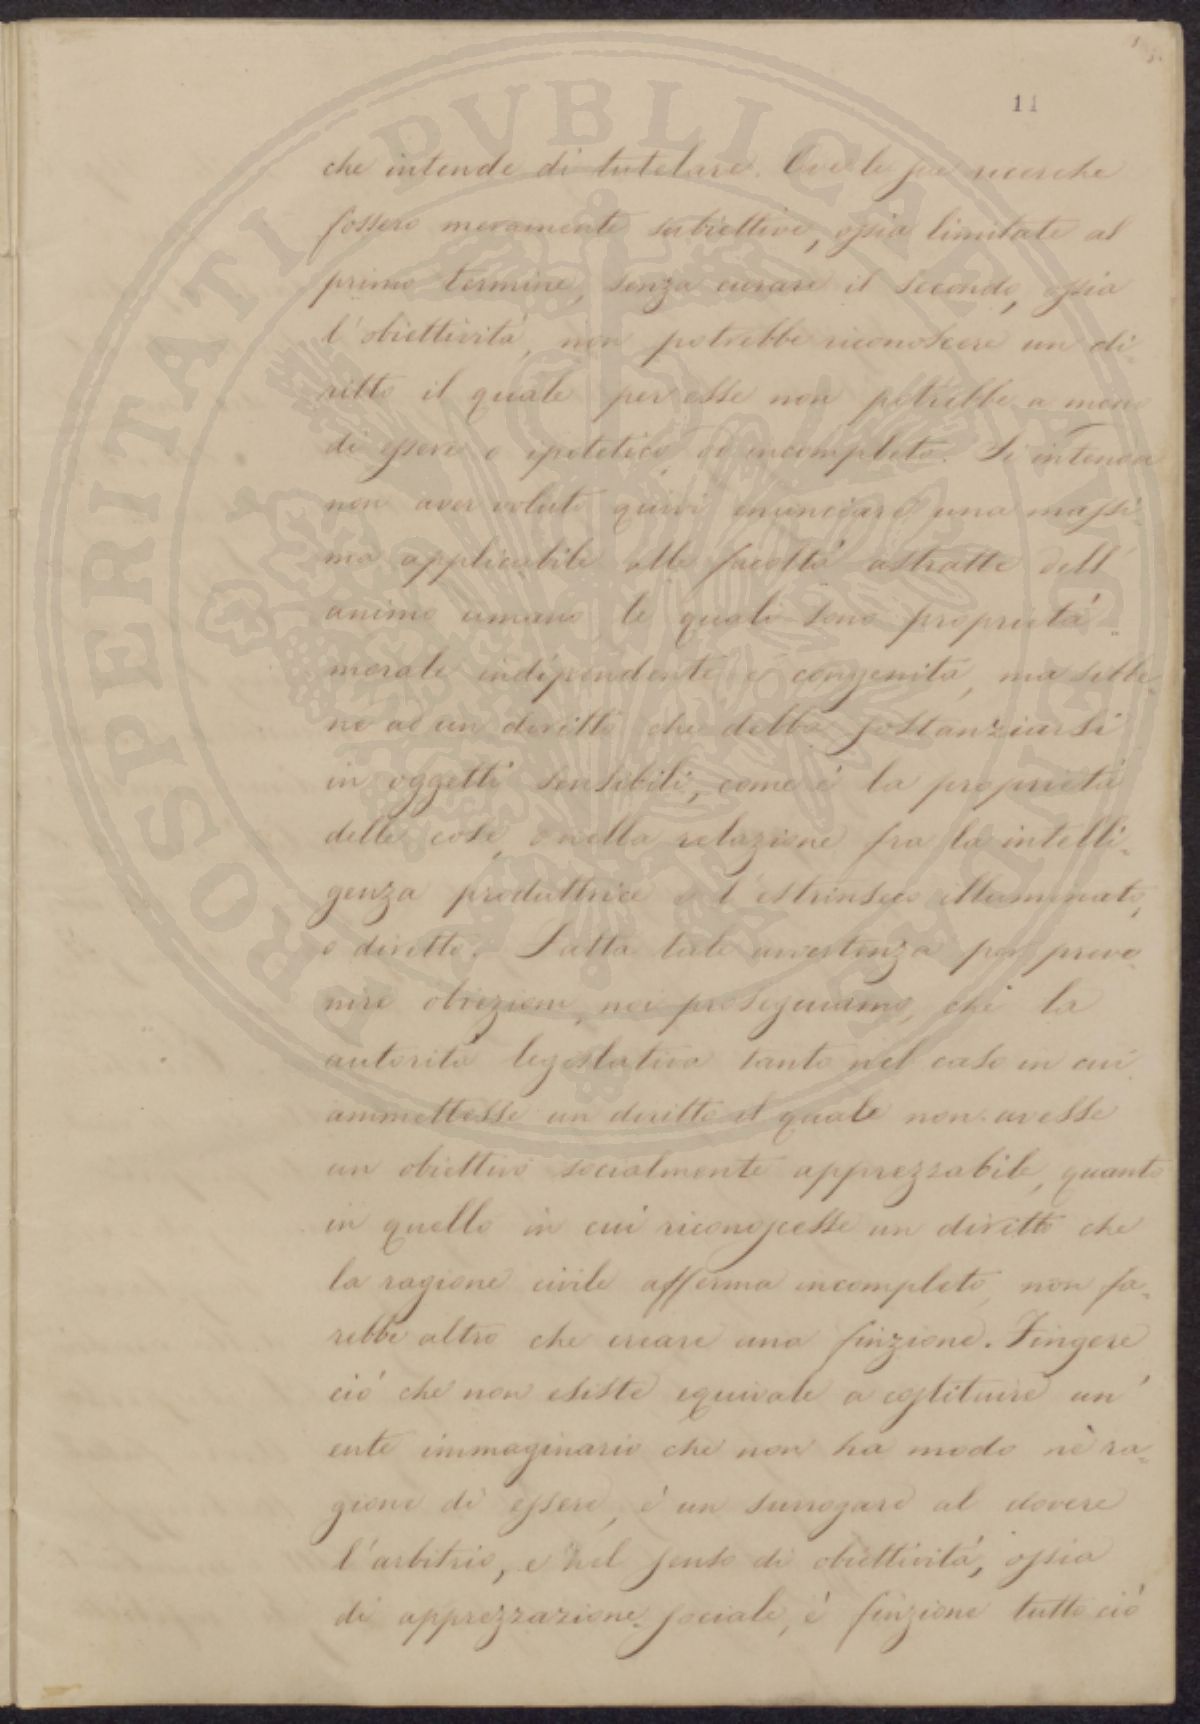 11
che intende di tutelare. Ove le sue ricerche
fossero meramente subiettive, ossia limitate al
primo termine, senza curare il secondo, ossia
l'obiettività, non potrebbe riconoscere un di-
ritto il quale per esse non potrebbe a meno
di essere o ipotetico, od incompleto. Si intenda
non aver voluto quivi enunciare una massi-
ma applicabile alle facoltà astratte dell'
animo umano le quali sono proprietà
morale indipendente e congenita, ma sebbe-
ne ad un diritto che debba sostanziarsi
in oggetti sensibili, come è la proprietà
delle cose, o nella relazione fra la intelli-
genza produttrice e l'estrinseco illuminato,
o diretto. Fatta tale avvertenza per preve-
nire obiezioni, noi proseguiamo, che la
autorità legislativa tanto nel caso in cui
ammettesse un diritto il quale non avesse
un obiettivo socialmente apprezzabile, quanto
in quello in cui riconoscesse un diritto che
la ragione civile afferma incompleto, non fa-
rebbe altro che creare una finzione. Fingere
ciò che non esiste equivale a costituire un'
ente immaginario che non ha modo nè ra-
gione di essere, è un surrogare al dovere
l'arbitrio, e nel senso di obiettività, ossia
di apprezzazione sociale, è finzione tutto ciò
PROSPERITATI PVBLICAE